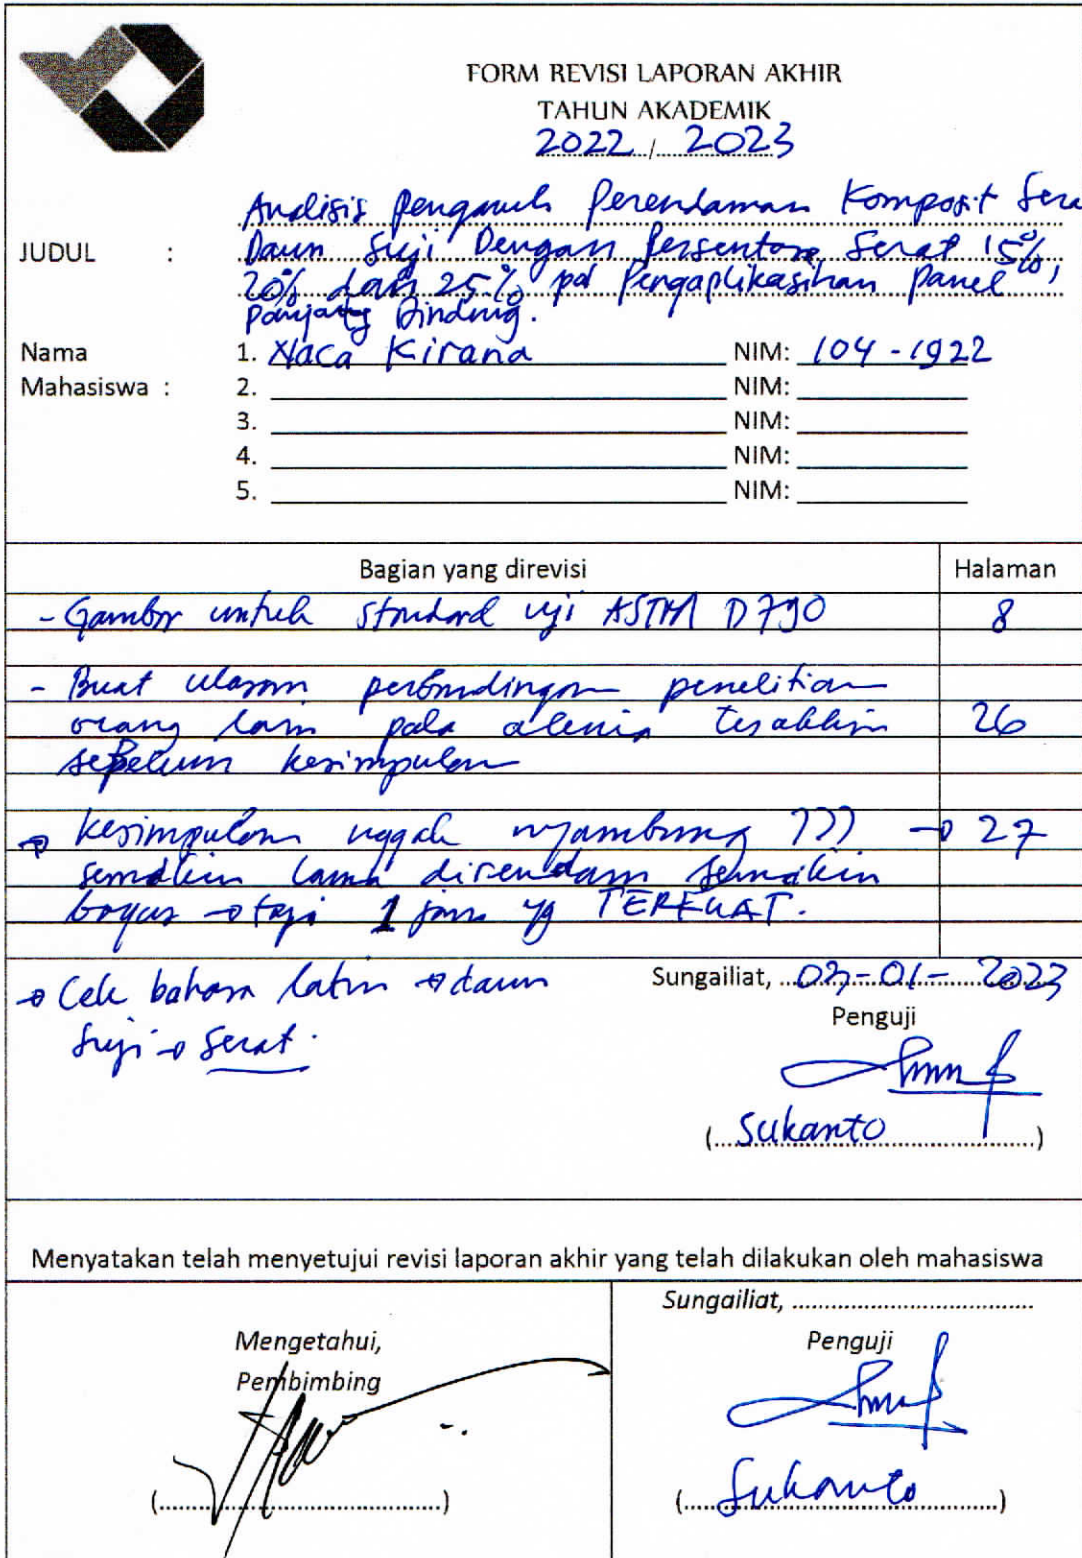 FORM REVISI LAPORAN AKHIR
TAHUN AKADEMIK
2022 / 2023
JUDUL : Analisis Pengaruh Perendaman Komposit Sera
Daun Suji Dengan Persentase Serat 15%,
20% dan 25% pd Pengaplikasihan Panel
Panjang Dinding.
Nama 1. Naca Kirana NIM: 104-1922
Mahasiswa : 2. NIM:
3. NIM:
4. NIM:
5. NIM:
Bagian yang direvisi Halaman
- Gambar untuk standard uji ASTM D790 8
- Buat ulasan perbandingan penelitian
orang lain pada alenia terakhir 26
sebelum kesimpulan
→ kesimpulan nggak nyambung ??? → 27
semakin lama direndam semakin
bagus → tapi 1 jam yg TERKUAT.
→ Cek bahasa latin → daun Sungailiat, 03-01-2023
Suji → Serat. Penguji
(Sukanto)
Menyatakan telah menyetujui revisi laporan akhir yang telah dilakukan oleh mahasiswa
Sungailiat, ....................................
Mengetahui, Penguji
Pembimbing
(..........................................) (Sukanto)